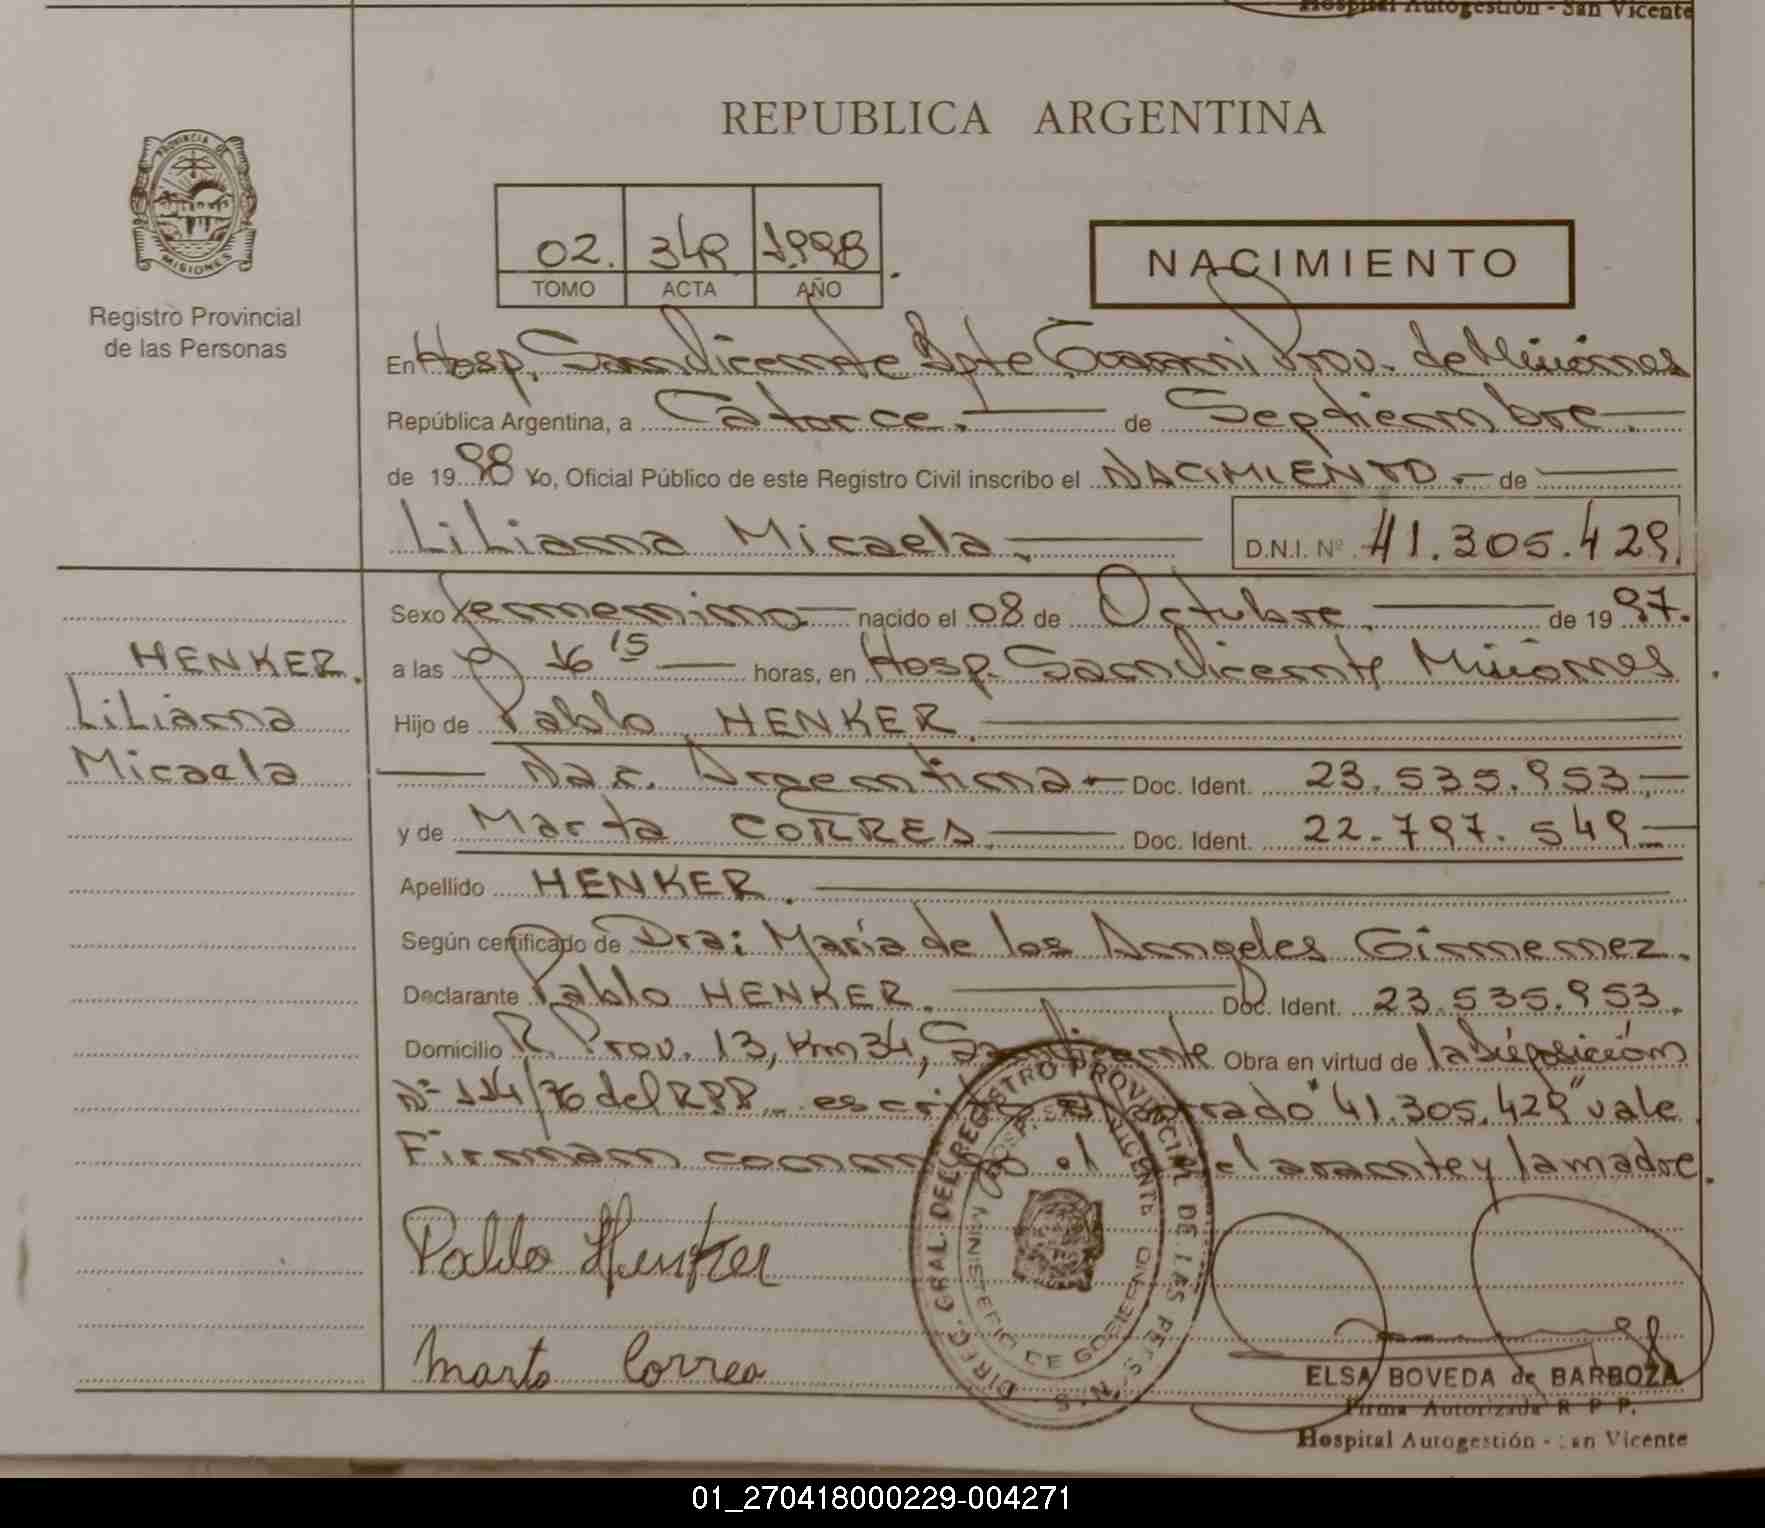 Hospital Autogestión - San Vicente
REPUBLICA ARGENTINA
PROVINCIA DE
MISIONES
Registro Provincial
de las Personas
02. 349 1998.
TOMO ACTA AÑO
NACIMIENTO
En Hosp. San Vicente Dpte Guarani Prov. de Misiones
República Argentina, a Catorce. de Septiembre.
de 1998 Yo, Oficial Público de este Registro Civil inscribo el NACIMIENTO.- de
Liliana Micaela. D.N.I. Nº 41.305.429.
Sexo femenino nacido el 08 de Octubre. de 1997.
a las 16 15 horas, en Hosp. San Vicente Misiones.
HENKER.
Liliana
Micaela
Hijo de Pablo HENKER.
Nac. Argentina Doc. Ident. 23.535.953,-
y de Marta CORREA Doc. Ident. 22.797.549-
Apellido HENKER.
Según certificado de Dra: María de los Angeles Gimenez.
Declarante Pablo HENKER. Doc. Ident. 23.535.953.
Domicilio R. Prov. 13, Km 34, San Vicente Obra en virtud de la Disposición
Nº 114/76 del RPP. 41.305.429" vale
Firman el declarante y la madre.
DIREC. GRAL. DEL REGISTRO PROVINCIAL DE LAS PERS.
MINISTERIO DE GOBIERNO
HOSP. SAN VICENTE
Pablo Henker
Marta Correa
ELSA BOVEDA de BARBOZA
Firma Autorizada R P P.
Hospital Autogestión - San Vicente
01_270418000229-004271